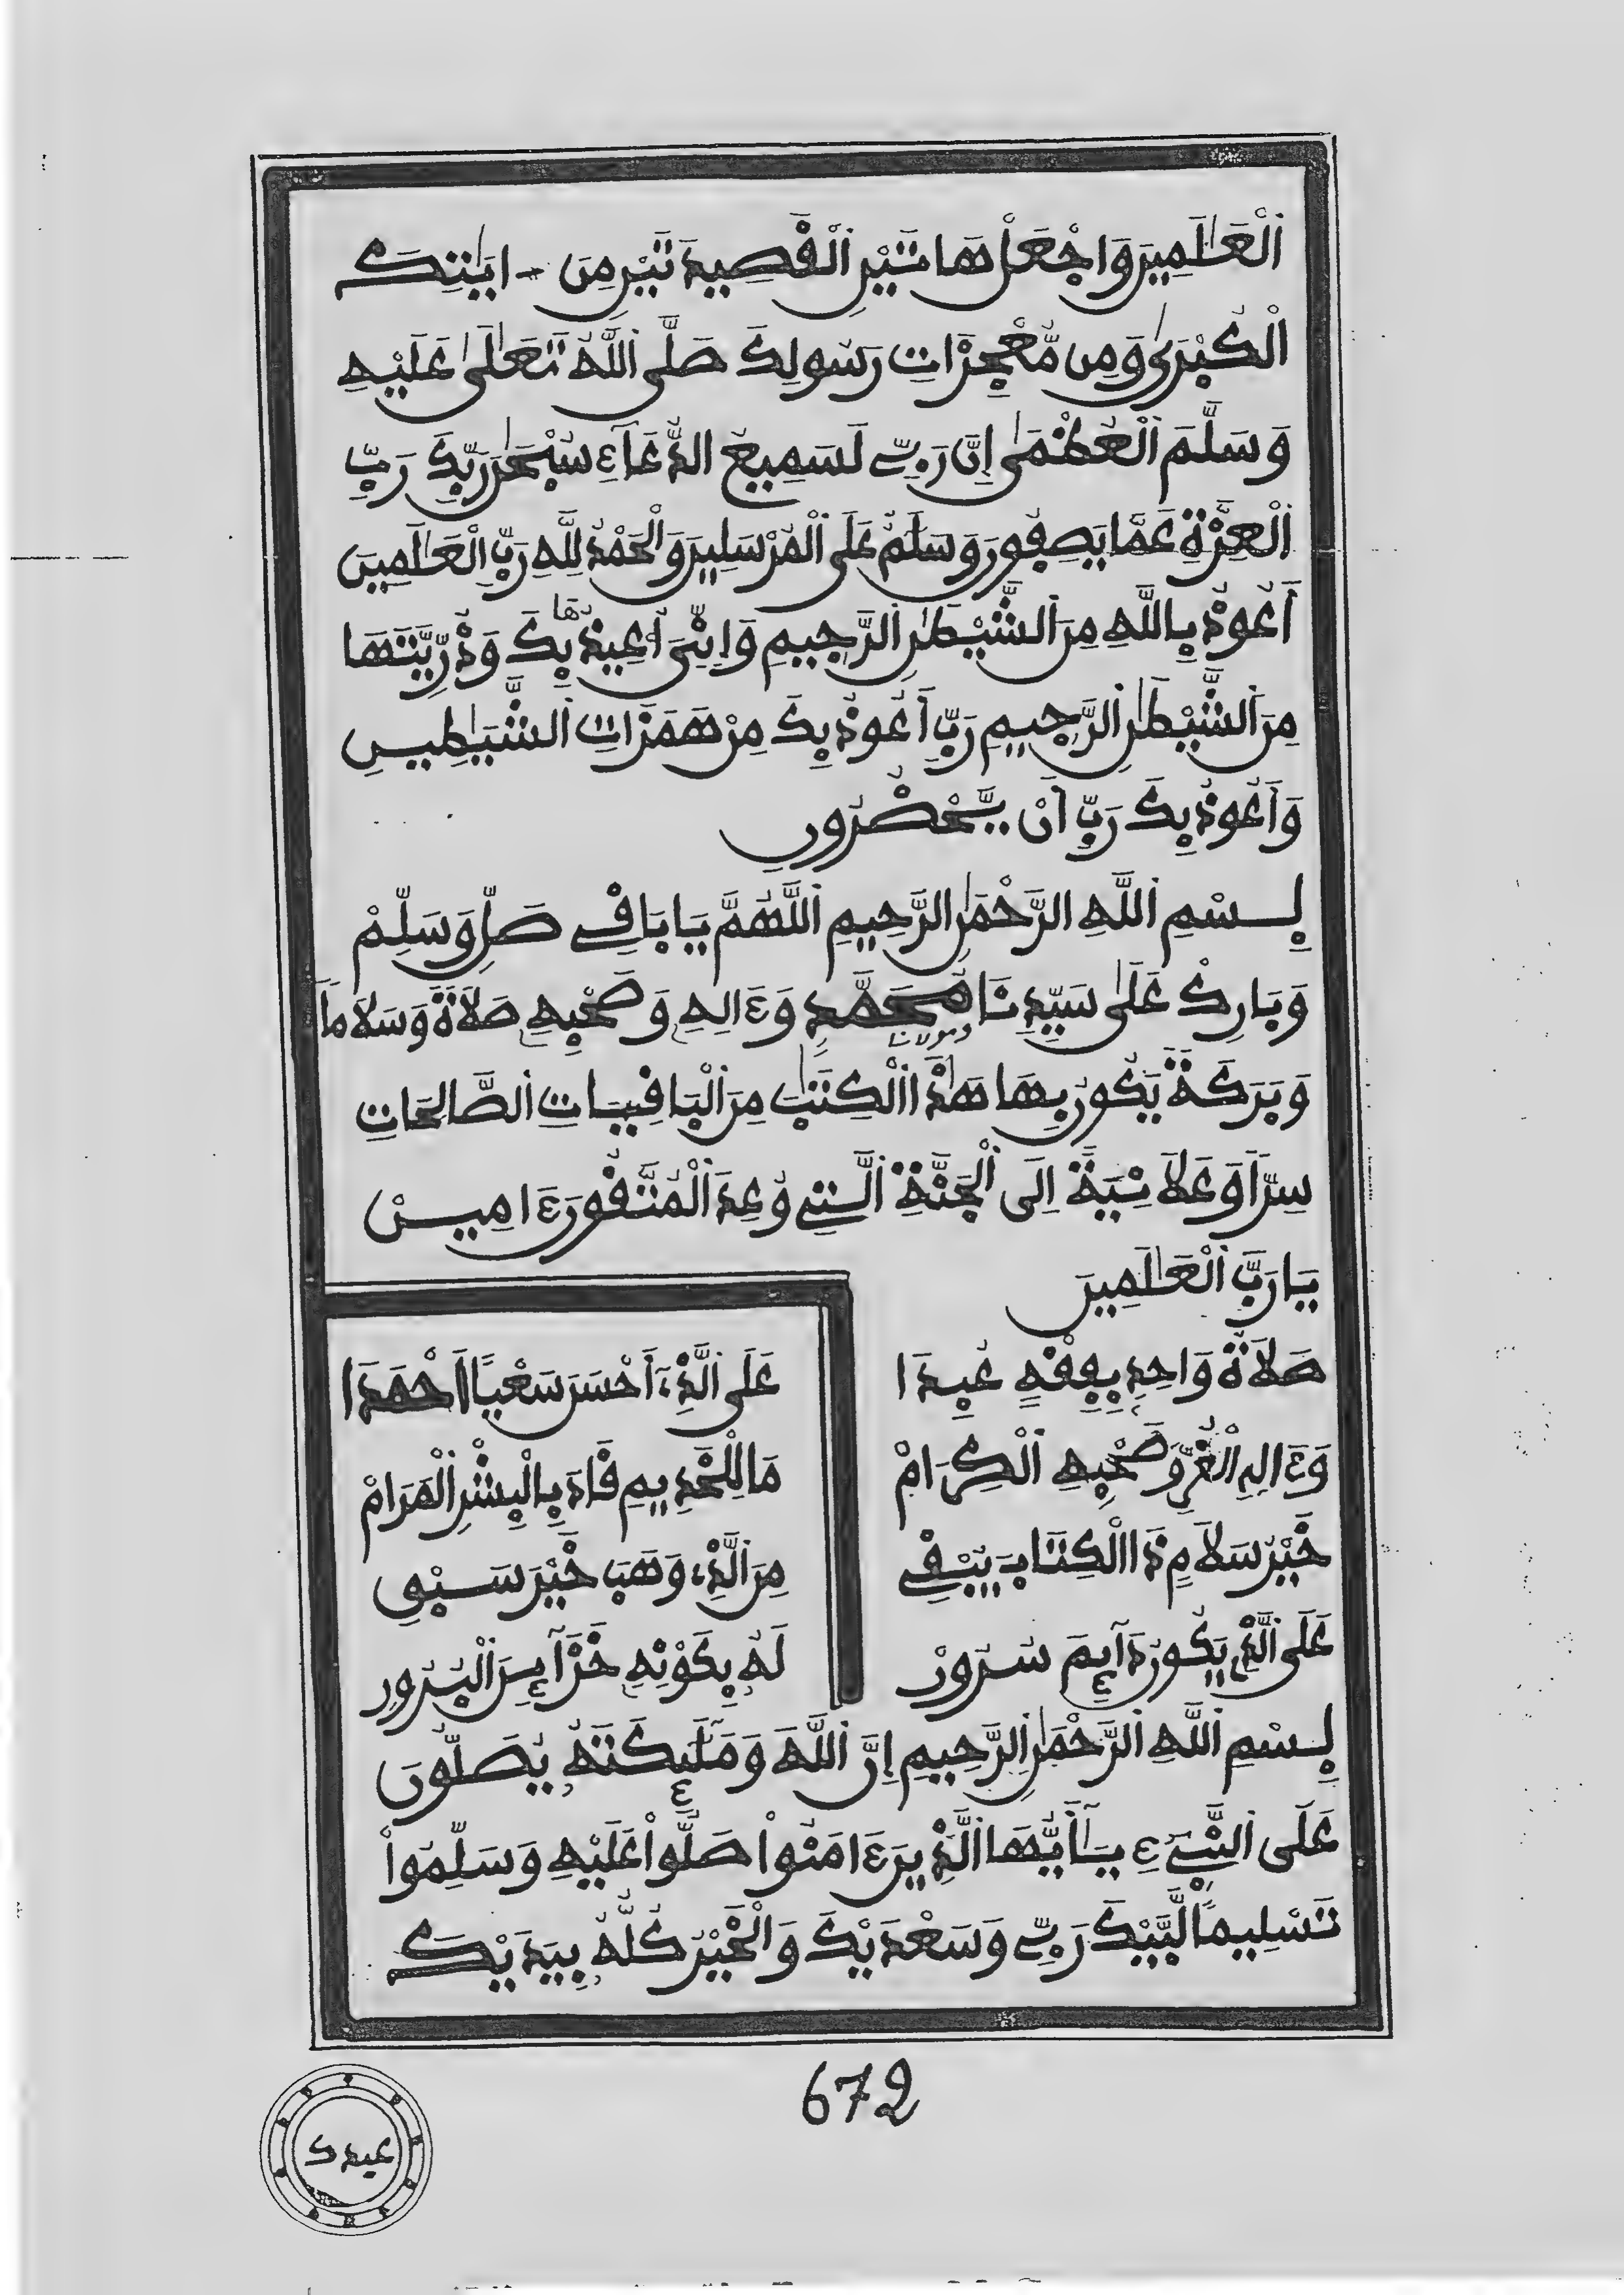 اَلْعَالَمِينَ وَاجْعَلْ هَاتَيْنِ اَلْقَصِيدَتَيْنِ مِنَ ايَٰتِكَ
اَلْكُبْرَىٰ وَمِن مُّعْجِزَاتِ رَسُولِكَ صَلَّى اَللَّهُ تَعَالَىٰ عَلَيْهِ
وَسَلَّمَ اَلْعُظْمَىٰ إِنَّ رَبِّي لَسَمِيعُ الدُّعَآءِ سُبْحَٰنَ رَبِّكَ رَبِّ
اَلْعِزَّةِ عَمَّا يَصِفُونَ وَسَلَٰمٌ عَلَى اَلْمُرْسَلِينَ وَالْحَمْدُ لِلَّهِ رَبِّ اِلْعَٰلَمِينَ
أَعُوذُ بِاللَّهِ مِنَ اَلشَّيْطَٰنِ اِلرَّجِيمِ وَإِنِّيَ أُعِيذُهَا بِكَ وَذُرِّيَّتَهَا
مِنَ اَلشَّيْطَٰنِ اِلرَّجِيمِ رَبِّ أَعُوذُ بِكَ مِنْ هَمَزَاتِ اِلشَّيَٰطِينِ
وَأَعُوذُ بِكَ رَبِّ أَنْ يَّحْضُرُونِ
بِسْمِ اِللَّهِ الرَّحْمَٰنِ الرَّحِيمِ اَللَّهُمَّ يَا بَاقِي صَلِّ وَسَلِّمْ
وَبَارِكْ عَلَىٰ سَيِّدِنَا ومولانا مُحَمَّدٍ وَءَالِهِ وَصَحْبِهِ صَلَاةً وَسَلَاماً
وَبَرَكَةً يَكُونُ بِهَا هَٰذَا اَلْكِتَٰبُ مِنَ اَلْبَاقِيَاتِ اِلصَّالِحَاتِ
سِرّاً وَعَلَانِيَةً اِلَى اَلْجَنَّةِ اِلَّتِي وُعِدَ اَلْمُتَّقُونَ ءَامِينْ
يَا رَبَّ اَلْعَالَمِينَ
صَلَاةُ وَاحِدٍ بِفِقْهٍ عُبِدَا عَلَى اَلَّذِي أَحْسَنَ سَعْياً أَحْمَدَا
وَءَالِهِ اِلْغُرِّ وَصَحْبِهِ اِلْكِرَامْ مَا لِلْخَدِيمِ قَادَ بِالْبِشْرِ اِلْمَرَامْ
خَيْرُ سَلَامٍ ذَا اَلْكِتَابَ يَبْقِي مِنَ اَلَّذِي وَهَبَ خَيْرَ سَبْقِ
عَلَى اَلَّذِي يَكُونُ دَآئِمَ سُرُورْ لَهُ بِكَوْنِهِ خَزَآئِنَ اَلْبُرُورْ
بِسْمِ اِللَّهِ اِلرَّحْمَٰنِ اِلرَّحِيمِ إِنَّ اَللَّهَ وَمَلَٰٓئِكَتَهُ يُصَلُّونَ
عَلَى اَلنَّبِيِّ ءِ يَٰٓأَيُّهَا اَلَّذِينَ ءَامَنُواْ صَلُّواْ عَلَيْهِ وَسَلِّمُواْ
تَسْلِيماً لَبَّيْكَ رَبِّي وَسَعْدَيْكَ وَالْخَيْرُ كُلُّهُ بِيَدَيْكَ
672